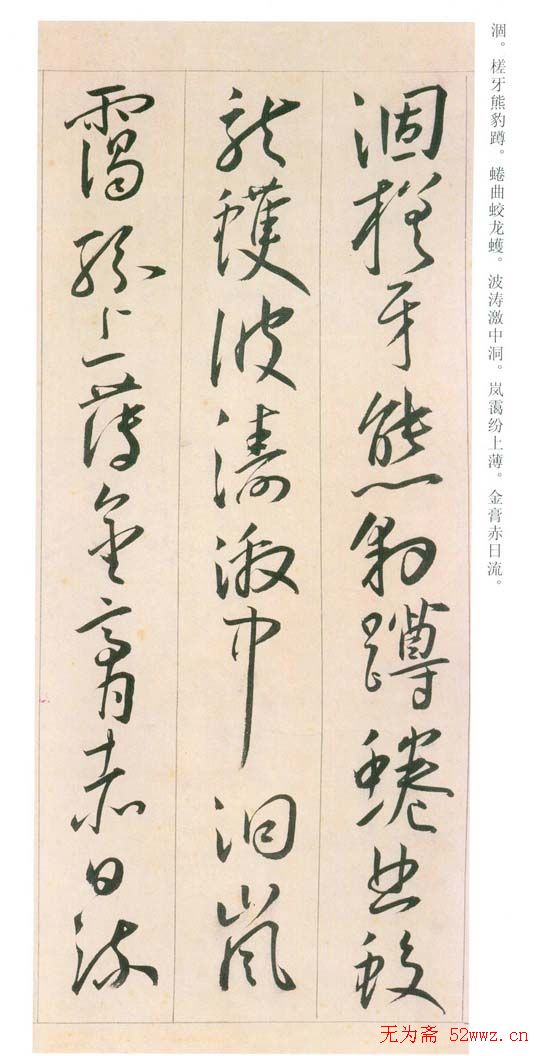 涸。槎牙熊豹蹲。蜷曲蛟龙蠖。波涛激中洞。岚霭纷上薄。金膏赤日流。
涸槎牙熊豹蹲蜷曲蛟
龙蠖波涛激中洞岚
霭纷上薄金膏赤日流
无为斋 52wwz.cn